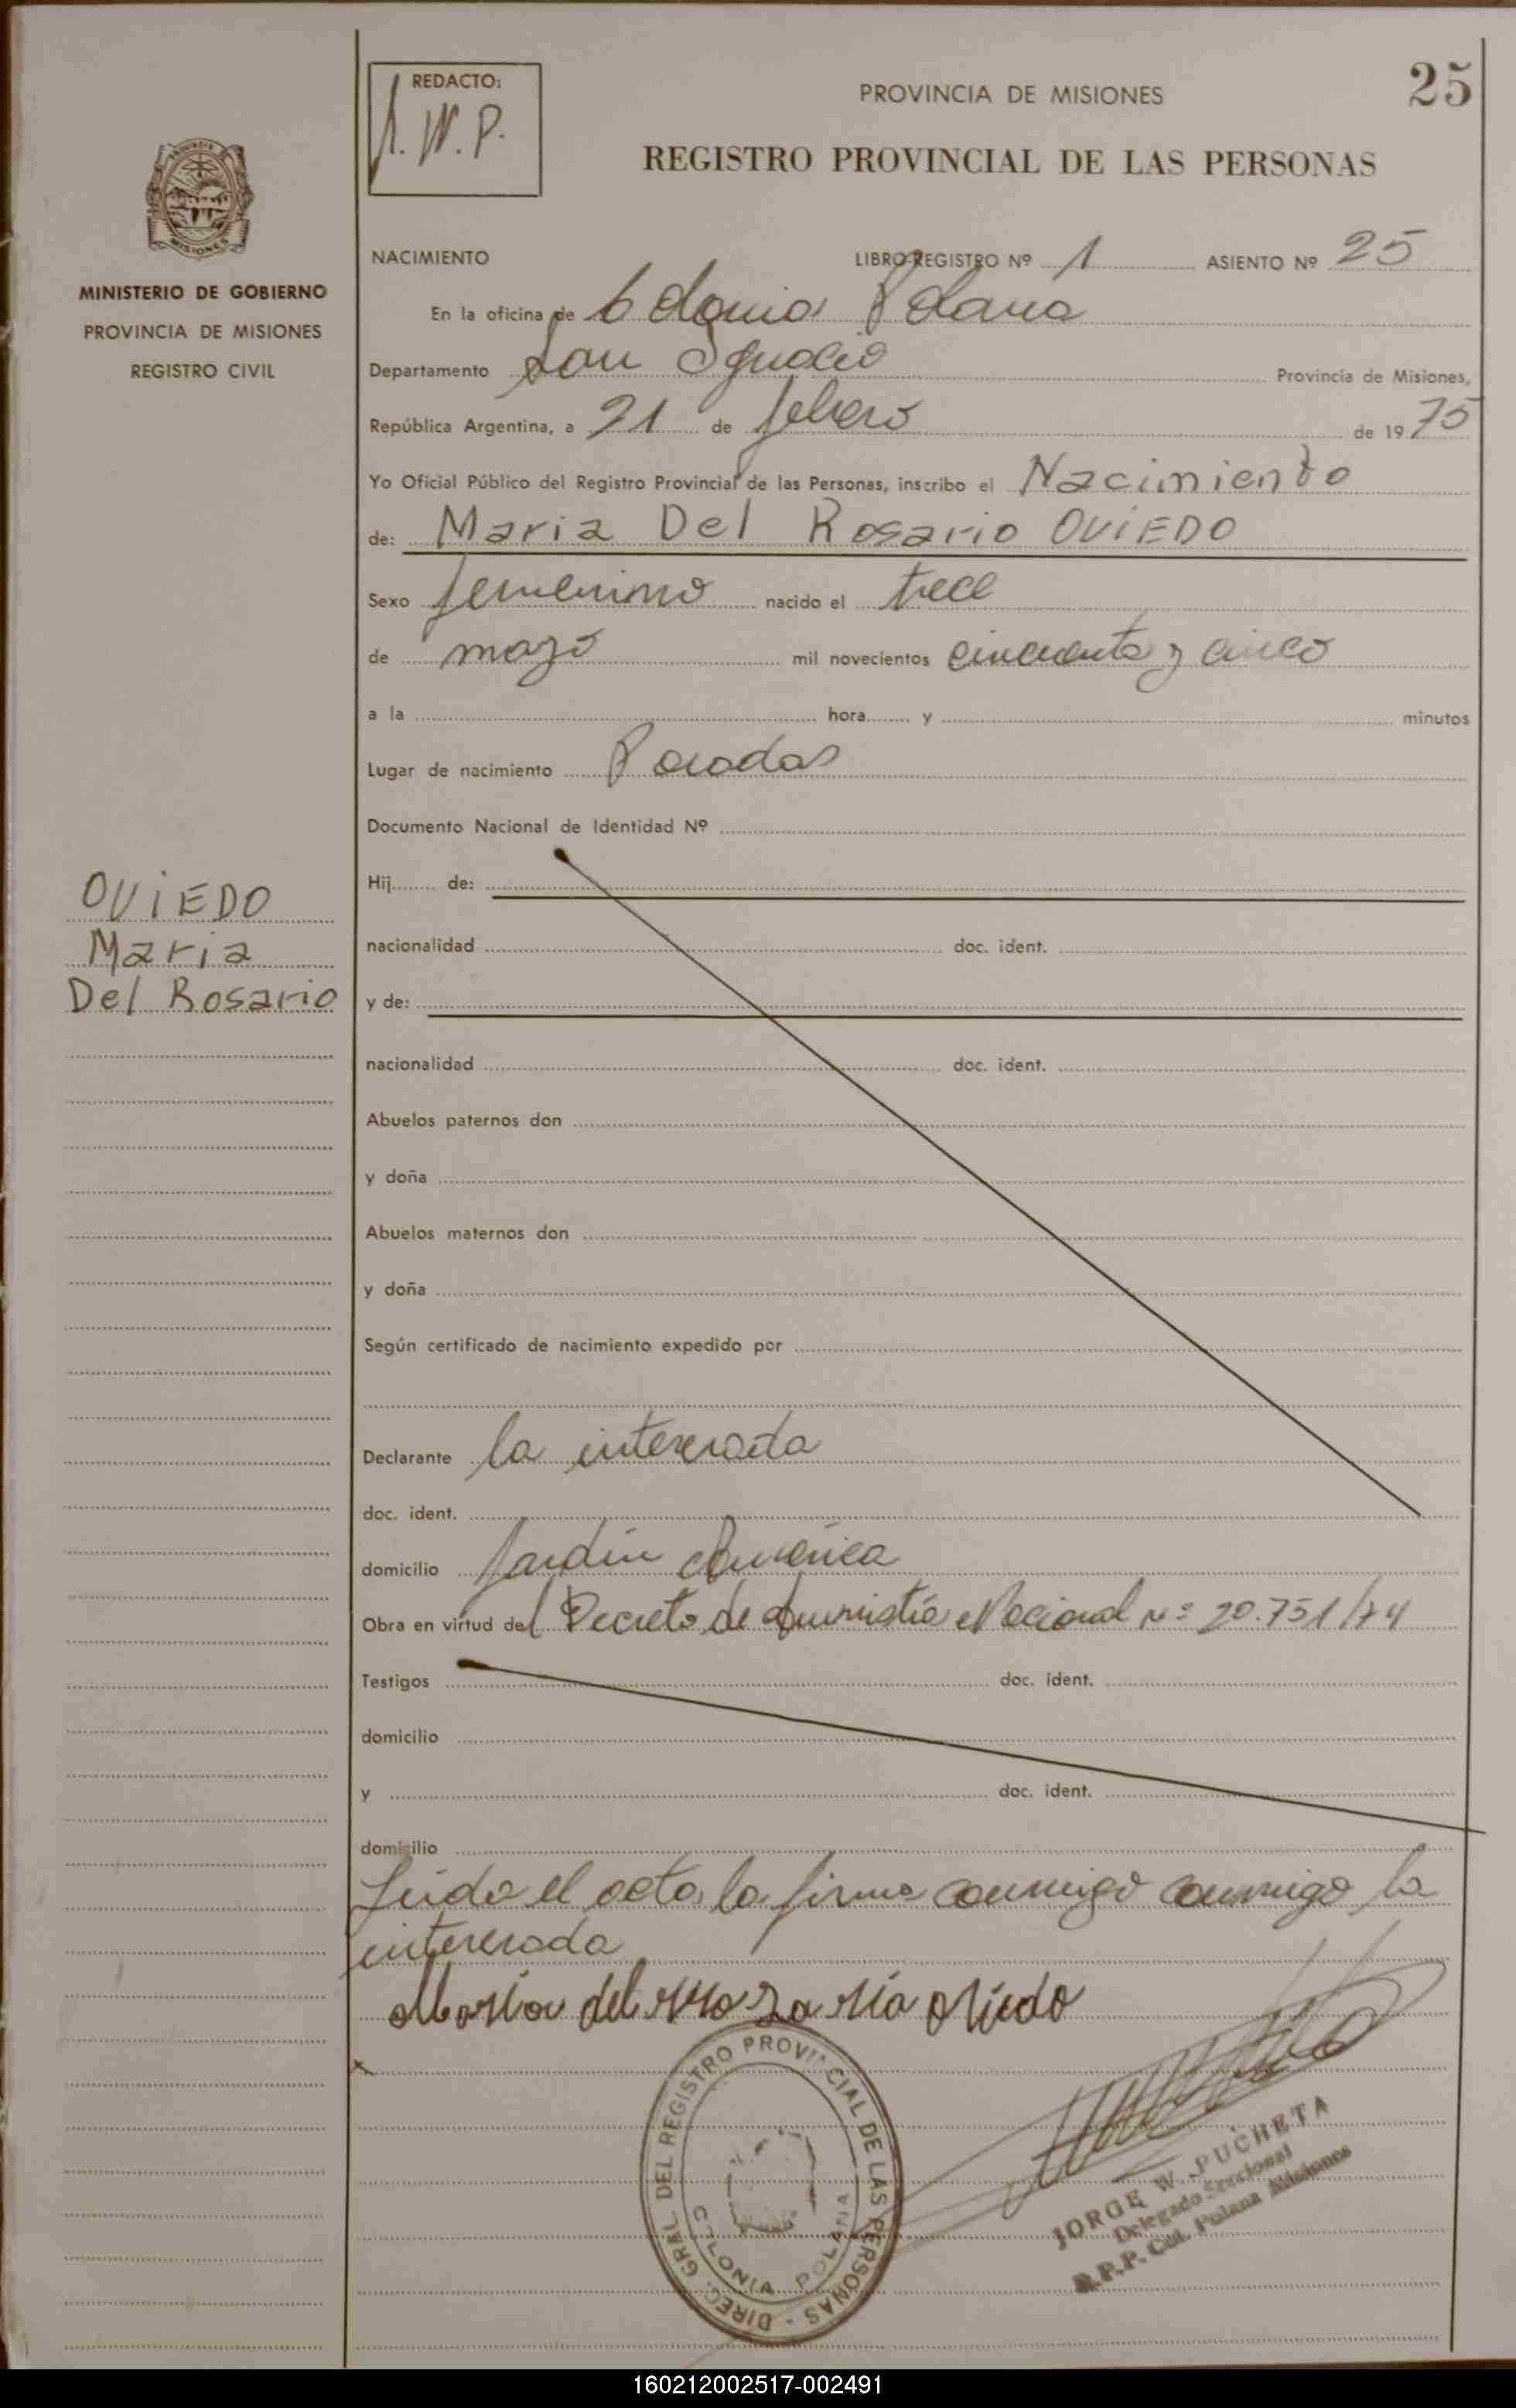 REDACTO:
J. W. P.
PROVINCIA DE MISIONES
25
REGISTRO PROVINCIAL DE LAS PERSONAS
MISIONES
MINISTERIO DE GOBIERNO
PROVINCIA DE MISIONES
REGISTRO CIVIL
NACIMIENTO LIBRO-REGISTRO Nº 1 ASIENTO Nº 25
En la oficina de Colonia Polana
Departamento San Ignacio Provincia de Misiones,
República Argentina, a 21 de febrero de 1975
Yo Oficial Público del Registro Provincial de las Personas, inscribo el Nacimiento
de: Maria Del Rosario OViEDO
Sexo femenino nacido el trece
de mayo mil novecientos cincuenta y cinco
a la hora y minutos
Lugar de nacimiento Posadas
Documento Nacional de Identidad Nº
Hij de:
OViEDO
Maria
Del Rosario
nacionalidad doc. ident.
y de:
nacionalidad doc. ident.
Abuelos paternos don
y doña
Abuelos maternos don
y doña
Según certificado de nacimiento expedido por
Declarante la interesada
doc. ident.
domicilio Jardín América
Obra en virtud del Decreto de Amnistía Nacional Nº 20.751/74
Testigos doc. ident.
domicilio
y doc. ident.
domicilio
Leida el acta, la firma conmigo conmigo la
interesada
DIREC. GRAL DEL REGISTRO PROVINCIAL DE LAS PERSONAS -
COLONIA POLANA
JORGE W. PUCHETA
Delegado Seccional
R.P.P. Col. Polana Misiones
160212002517-002491